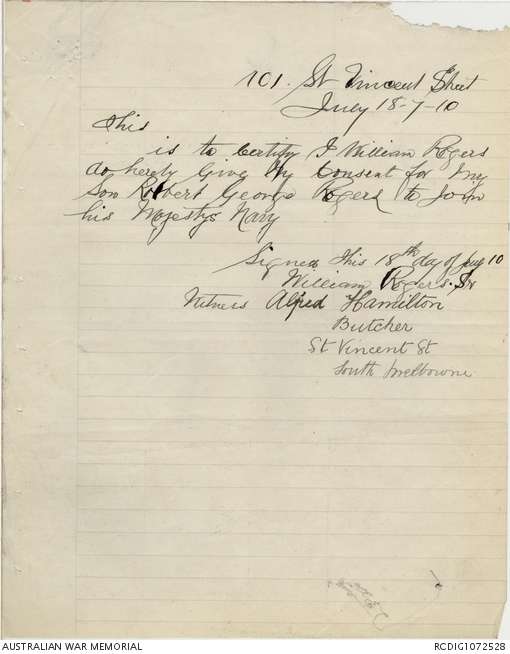 101. St Vincent Street
July 18-7-10
This
is to Certify I William Rogers
do hereby Give My Consent for My
Son Robert George Rogers to Join
his Majestys Navy
Signed This 18th day of July 10
William Rogers. Snr
Witness Alfred Hamilton
Butcher
St Vincent St
South Melbourne
AUSTRALIAN WAR MEMORIAL
RCDIG1072528